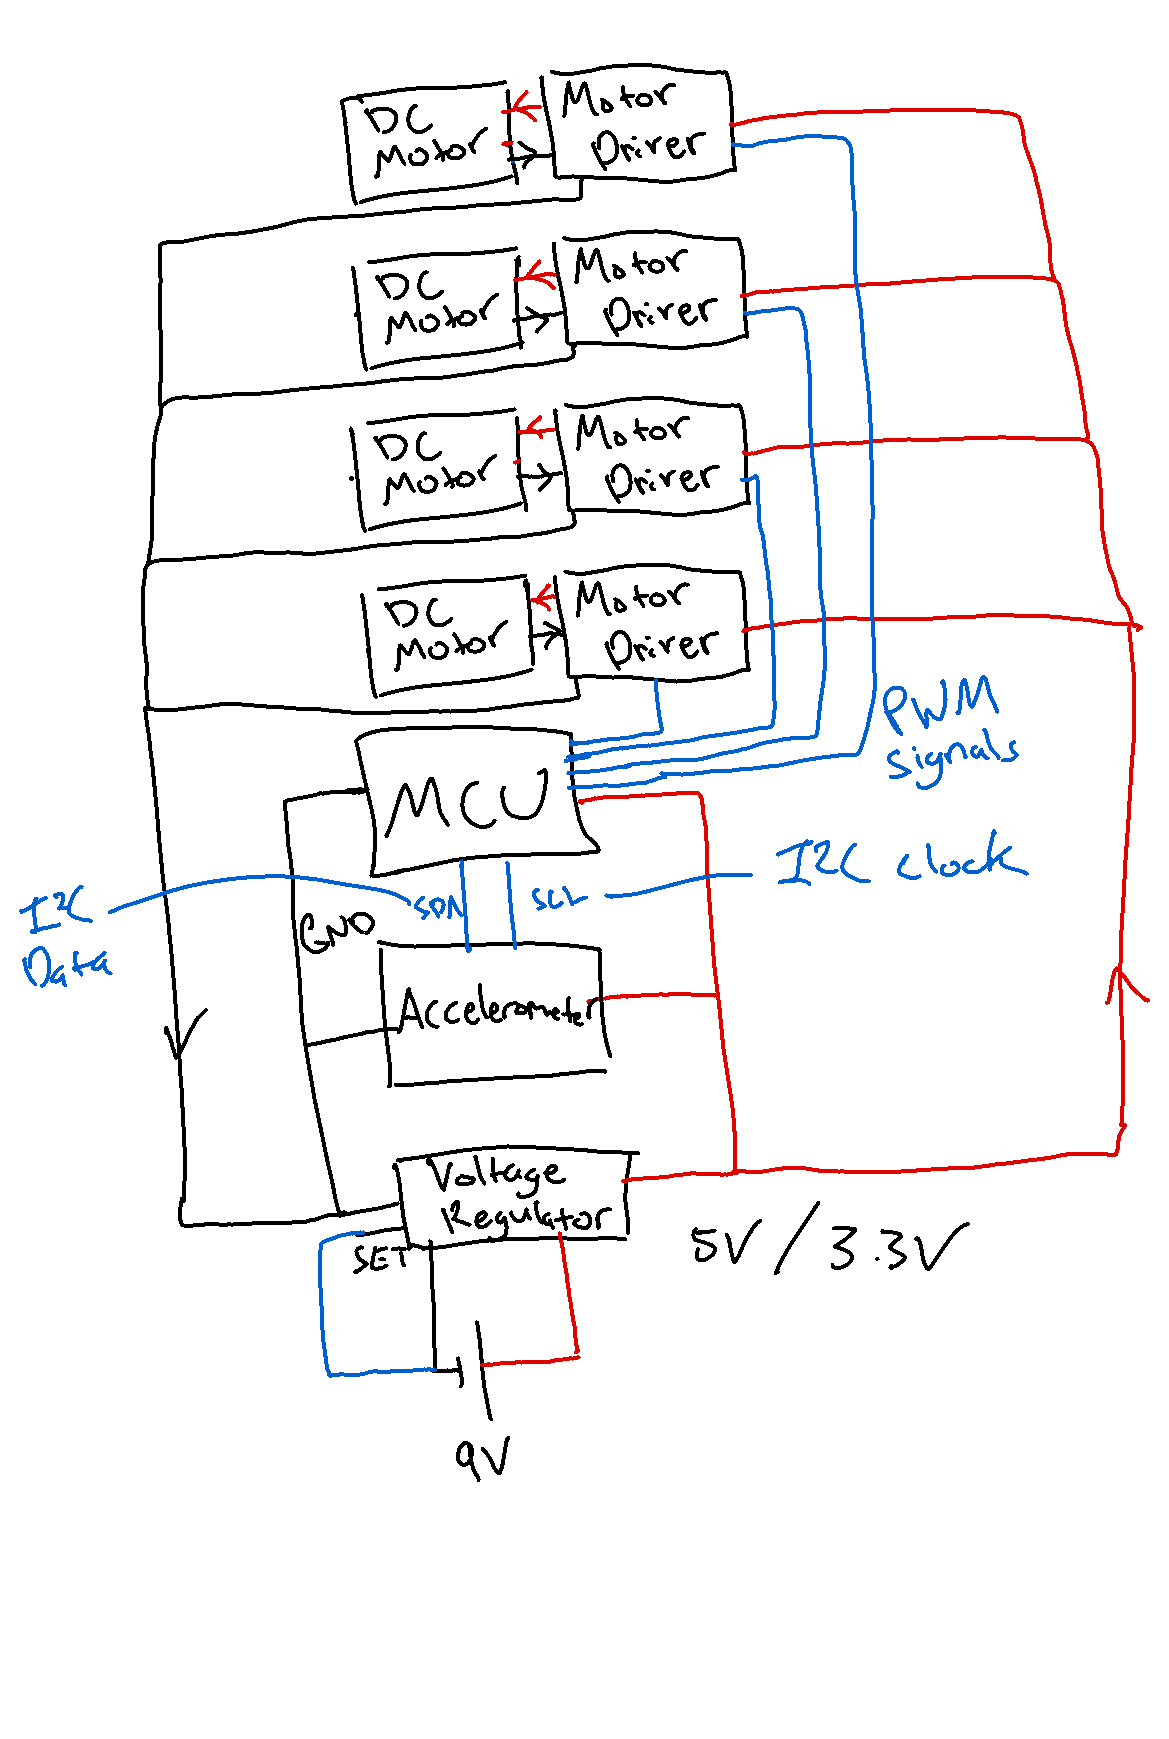 DC
Motor
Motor
Driver
DC
Motor
Motor
Driver
DC
Motor
Motor
Driver
DC
Motor
Motor
Driver
PWM
signals
MCU
I2C clock
I2C
Data
SDA
SCL
GND
Accelerometer
Voltage
Regulator
SET
5V / 3.3V
9V